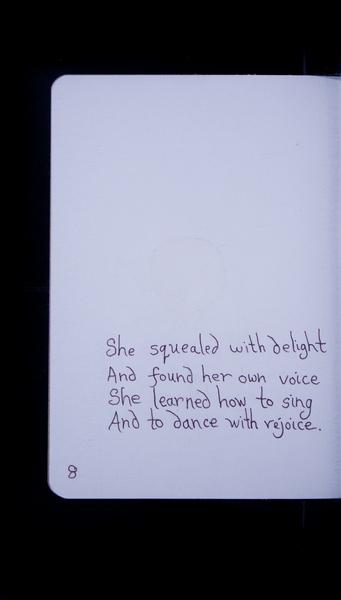 She squealed with delight
And found her own voice
She learned how to sing
And to dance with rejoice.
8